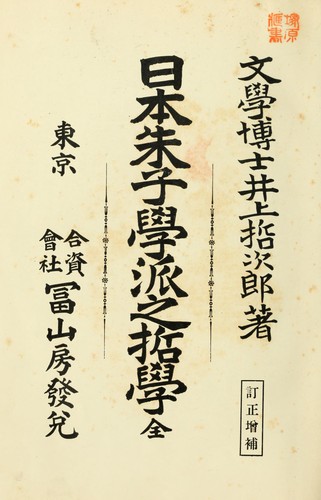 文學博士井上哲次郎著
訂正增補
日本朱子學派之哲學 全
東京
合資
會社
冨山房發兌